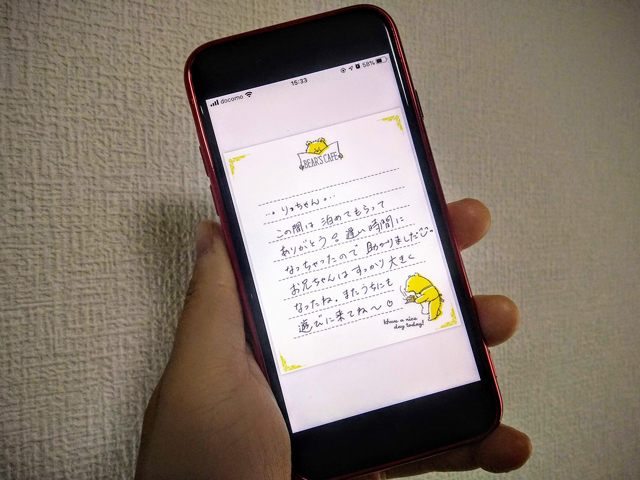 docomo 15:33 58%
BEAR'S CAFE
りっちゃん
この間は泊めてもらって
ありがとう♡ 遅い時間に
なっちゃったので助かりました
お兄ちゃんはすっかり大きく
なったね。またうちにも
遊びに来てね〜
Have a nice
day today!